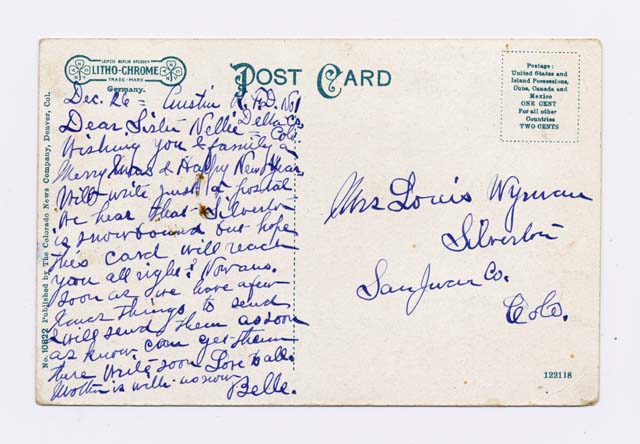 LEIPZIG BERLIN DRESDEN
LITHO-CHROME
TRADE-MARK
Germany.
POST CARD
Postage:
United States and
Island Possessions,
Cuba, Canada and
Mexico
ONE CENT
For all other
Countries
TWO CENTS
No. 10822 Published by The Colorado News Company, Denver, Col.
Dec. 26 = Austin R.F.D. No 1
Delta Co
Dear Sister Nellie = Colo.
Wishing you & family a
Merry Xmas & Happy New Year
Will write just a postal
We hear that Silverton
is snowbound but hope
this card will reach
you all right? Now ans.
soon as we have a few
things to send
& will send them as soon
as know can get them
there Write soon Love to all
Mother is with us now
Belle.
Mrs Louis Wyman
Silverton
San Juan Co.
Colo.
122118